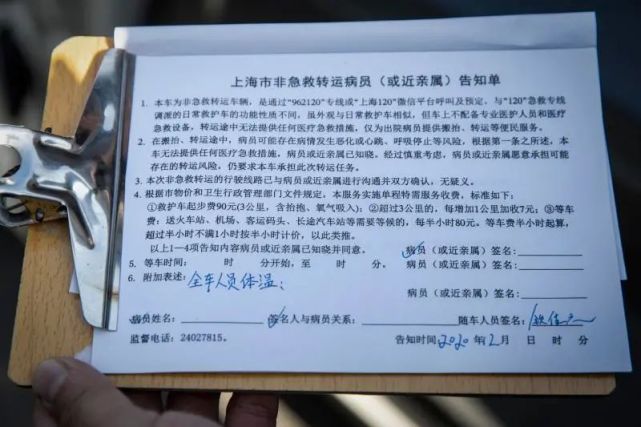 上海市非急救转运病员（或近亲属）告知单
1. 本车为非急救转运车辆，是通过“962120”专线或“上海120”微信平台呼叫及预定，与“120”急救专线
调派的日常救护车的功能性质不同，虽外观与日常救护车相似，但车上不配备专业医护人员和医疗
急救设备，转运途中无法提供任何医疗急救措施，仅为出院病员提供搬抬、转运等便民服务。
2. 在搬抬、转运途中，病员可能存在病情发生恶化或心跳、呼吸停止等风险，根据第一条之所述，本
车无法提供任何医疗急救措施，病员或近亲属已知晓。经过慎重考虑，病员或近亲属愿意承担可能
存在的转运风险，仍要求本车承担此次转运任务。
3. 本次非急救转运的行驶线路已与病员或近亲属进行沟通并双方确认，无疑义。
4. 根据市物价和卫生行政管理部门文件规定，本服务实施单程特需服务收费，标准如下：
①救护车起步费90元(3公里，含抬抱、氧气吸入)；②超过3公里的，每增加1公里加收7元；③等车
费：送火车站、机场、客运码头、长途汽车站等需要等候的，每半小时80元。等车费半小时起算，
超过半小时不满1小时按半小时计价，以此类推。
以上1—4项告知内容病员或近亲属已知晓并同意。 病员（或近亲属）签名：
5. 等车时间： 时 分开始，至 时 分。 病员（或近亲属）签名：
6. 附加表述：全车人员体温：
病员（或近亲属）签名：
病员姓名： 签名人与病员关系： 随车人员签名：
监督电话：24027815。 告知时间：2020年2月 日 时 分